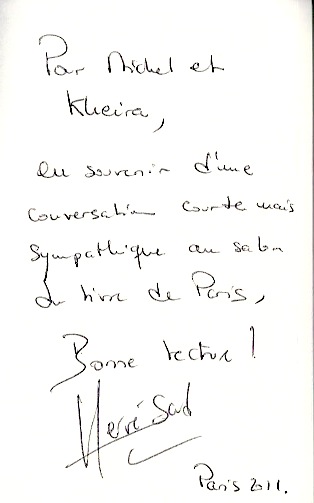 Pour Michel et
Kheira,
en souvenir d'une
conversation courte mais
sympathique au salon
du livre de Paris,
Bonne lecture !
Hervé
Paris 2011.